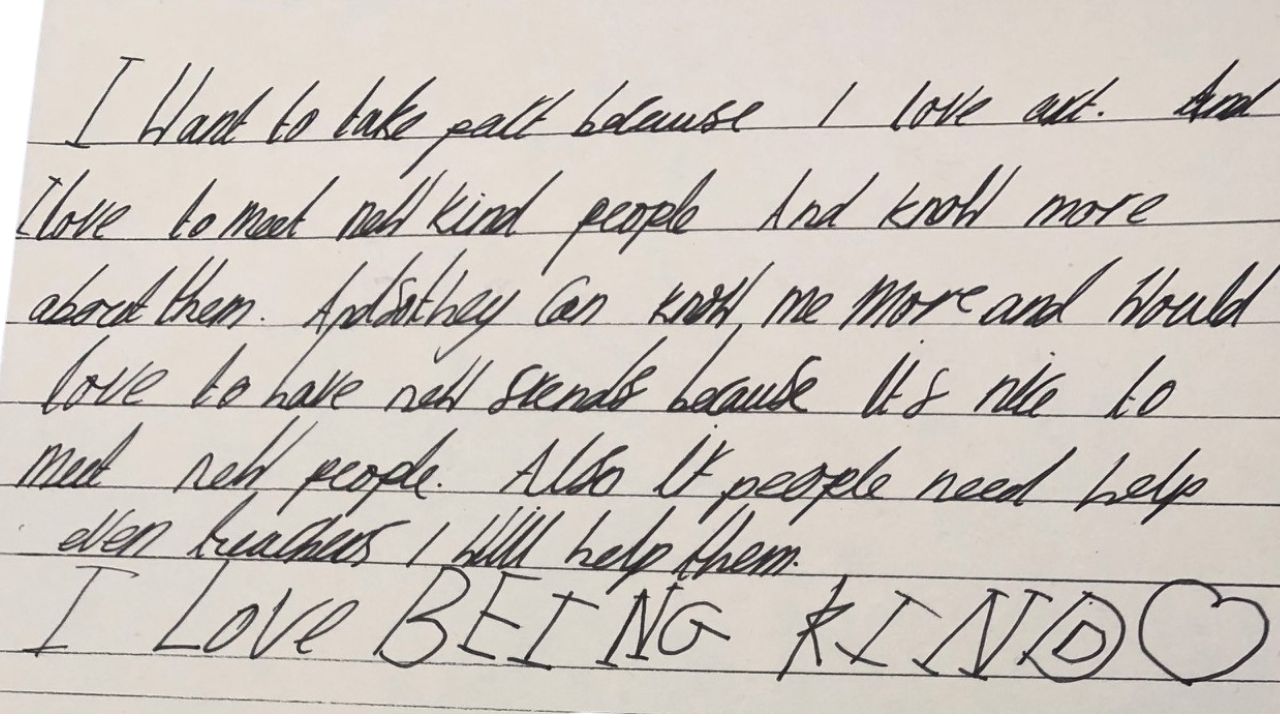 I Want to take part because I love art. And
I love to meet new kind people And know more
about them. And so they Can know me More and Would
love to have new friends because It's nice to
Meet new people. Also If people need help
even treachers I Will help them.
I Love BEING KIND ♡